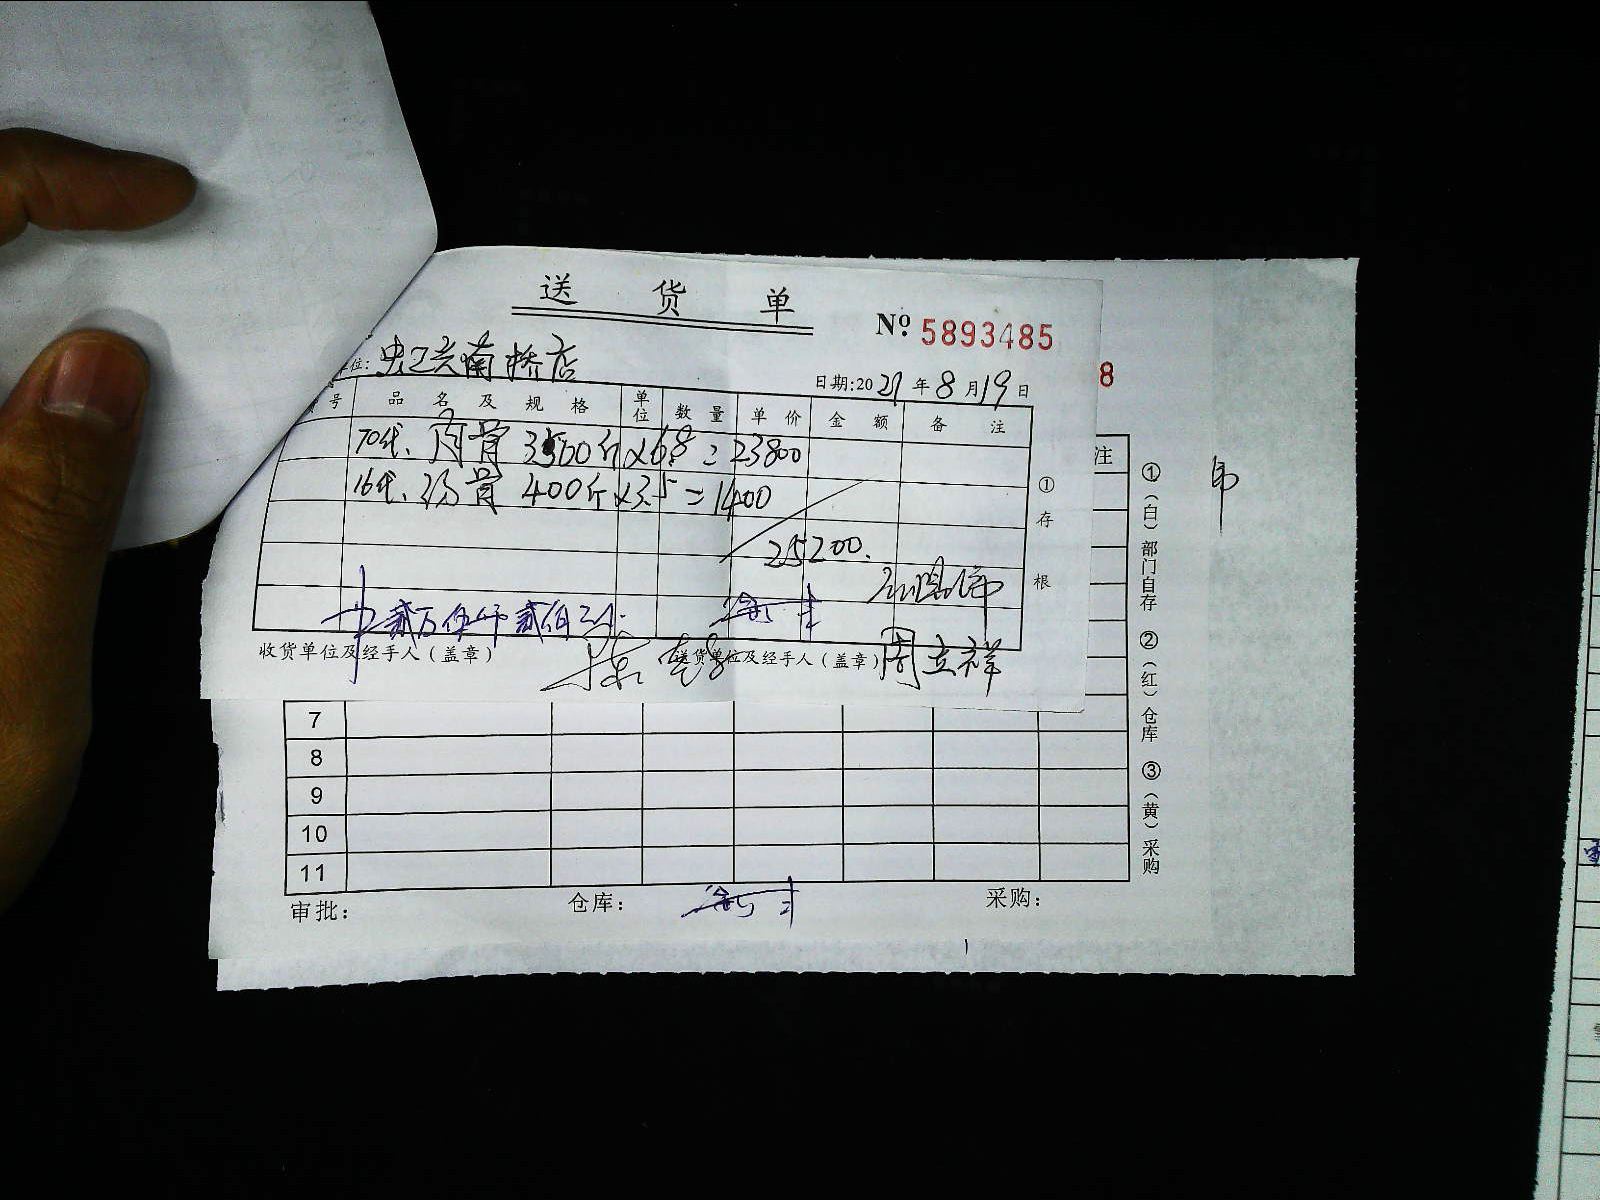 送 货 单
№ 5893485
位: 史卫兴南桥店
日期:2021年8月19日
号 品名及规格 单位 数量 单价 金额 备注
70代、肉骨 3500斤×6.8=23800
16代、汤骨 400斤×3.5=1400
25200.
贰万伍仟贰佰元
收货单位及经手人(盖章) 送货单位及经手人(盖章) 周立祥
①存根
8
注
7
8
9
10
11
审批: 仓库: 采购:
①(白)部门自存 ②(红)仓库 ③(黄)采购